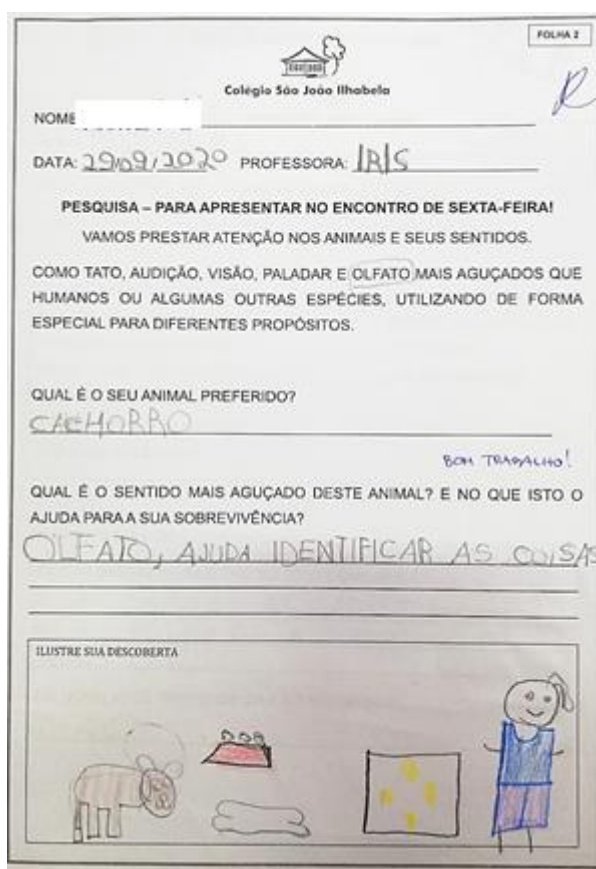 FOLHA 2
Colégio São João Ilhabela
NOME
DATA: 29/09/2020 PROFESSORA: IRIS
PESQUISA – PARA APRESENTAR NO ENCONTRO DE SEXTA-FEIRA!
VAMOS PRESTAR ATENÇÃO NOS ANIMAIS E SEUS SENTIDOS.
COMO TATO, AUDIÇÃO, VISÃO, PALADAR E OLFATO MAIS AGUÇADOS QUE
HUMANOS OU ALGUMAS OUTRAS ESPÉCIES, UTILIZANDO DE FORMA
ESPECIAL PARA DIFERENTES PROPÓSITOS.
QUAL É O SEU ANIMAL PREFERIDO?
CACHORRO
BOM TRABALHO!
QUAL É O SENTIDO MAIS AGUÇADO DESTE ANIMAL? E NO QUE ISTO O
AJUDA PARA A SUA SOBREVIVÊNCIA?
OLFATO, AJUDA IDENTIFICAR AS COISAS
ILUSTRE SUA DESCOBERTA